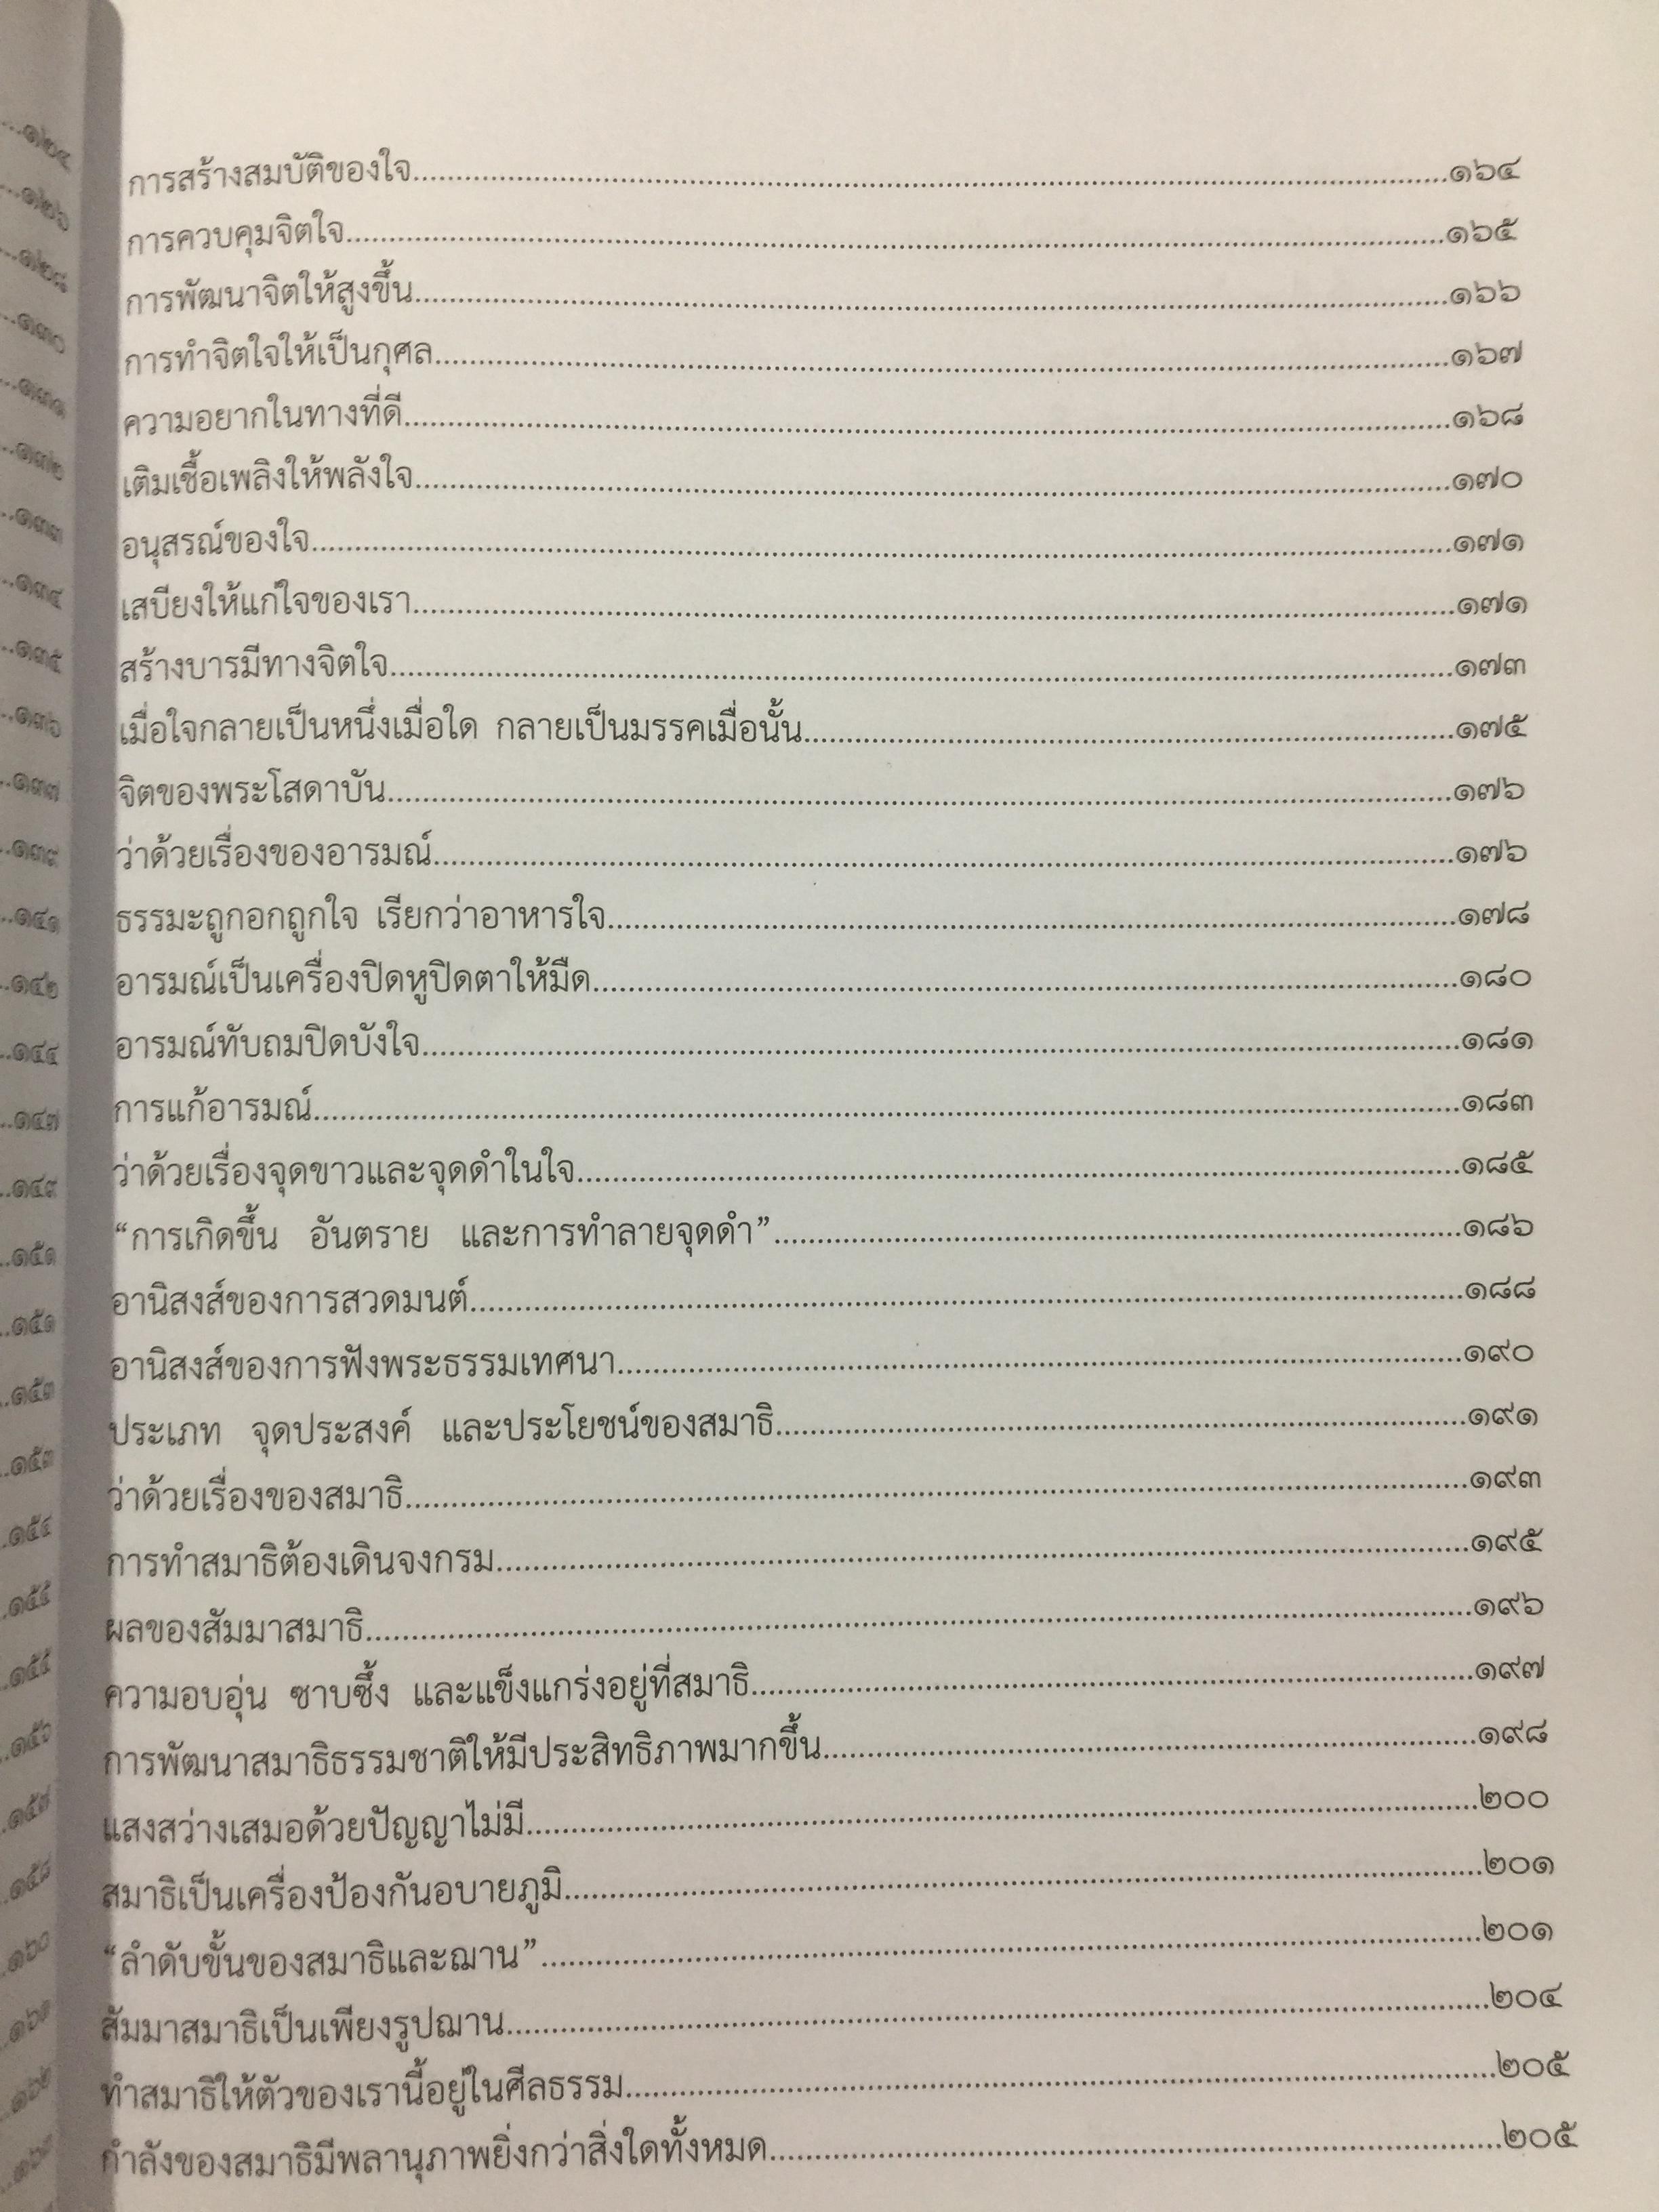 การสร้างสมบัติของใจ................................................๑๖๔
การควบคุมจิตใจ................................................๑๖๕
การพัฒนาจิตให้สูงขึ้น................................................๑๖๖
การทำจิตใจให้เป็นกุศล................................................๑๖๗
ความอยากในทางที่ดี................................................๑๖๘
เติมเชื้อเพลิงให้พลังใจ................................................๑๗๐
อนุสรณ์ของใจ................................................๑๗๑
เสบียงให้แก่ใจของเรา................................................๑๗๑
สร้างบารมีทางจิตใจ................................................๑๗๓
เมื่อใจกลายเป็นหนึ่งเมื่อใด กลายเป็นมรรคเมื่อนั้น................................................๑๗๕
จิตของพระโสดาบัน................................................๑๗๖
ว่าด้วยเรื่องของอารมณ์................................................๑๗๖
ธรรมะถูกอกถูกใจ เรียกว่าอาหารใจ................................................๑๗๘
อารมณ์เป็นเครื่องปิดหูปิดตาให้มืด................................................๑๘๐
อารมณ์ทับถมปิดบังใจ................................................๑๘๑
การแก้อารมณ์................................................๑๘๓
ว่าด้วยเรื่องจุดขาวและจุดดำในใจ................................................๑๘๕
“การเกิดขึ้น อันตราย และการทำลายจุดดำ”................................................๑๘๖
อานิสงส์ของการสวดมนต์................................................๑๘๘
อานิสงส์ของการฟังพระธรรมเทศนา................................................๑๙๐
ประเภท จุดประสงค์ และประโยชน์ของสมาธิ................................................๑๙๑
ว่าด้วยเรื่องของสมาธิ................................................๑๙๓
การทำสมาธิต้องเดินจงกรม................................................๑๙๕
ผลของสัมมาสมาธิ................................................๑๙๖
ความอบอุ่น ซาบซึ้ง และแข็งแกร่งอยู่ที่สมาธิ................................................๑๙๗
การพัฒนาสมาธิธรรมชาติให้มีประสิทธิภาพมากขึ้น................................................๑๙๘
แสงสว่างเสมอด้วยปัญญาไม่มี................................................๒๐๐
สมาธิเป็นเครื่องป้องกันอบายภูมิ................................................๒๐๑
“ลำดับขั้นของสมาธิและฌาน”................................................๒๐๑
สัมมาสมาธิเป็นเพียงรูปฌาน................................................๒๐๔
ทำสมาธิให้ตัวของเรานี้อยู่ในศีลธรรม................................................๒๐๕
กำลังของสมาธิมีพลานุภาพยิ่งกว่าสิ่งใดทั้งหมด................................................๒๐๕